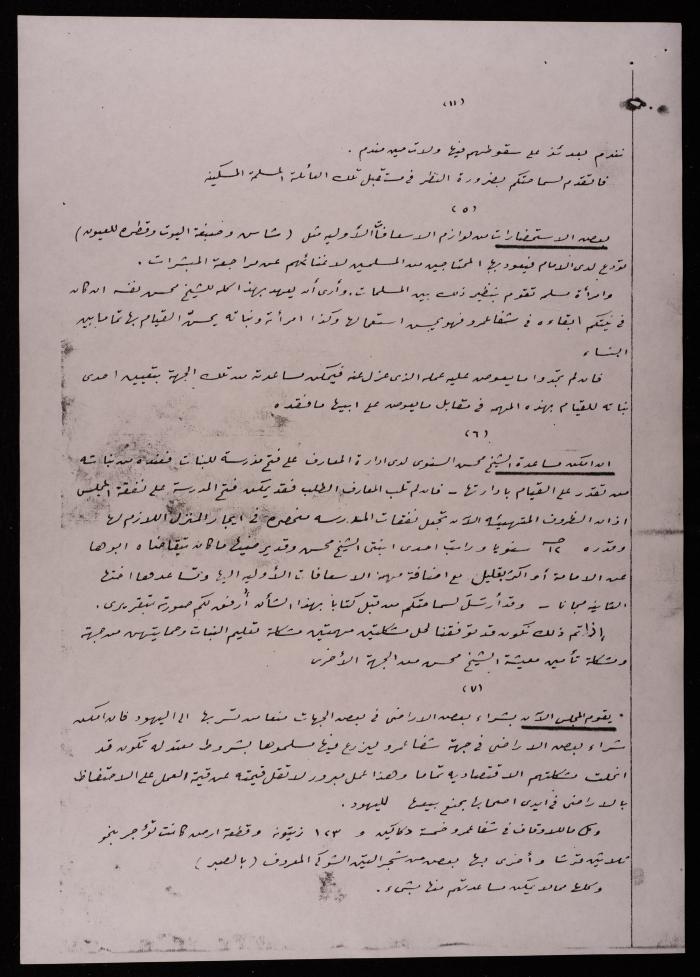 (١١)
نندم بعدئذ على سقوطهم فيها ولات حين مندم .
فالتقدم لسماحتكم بضرورة النظر في مستقبل تلك العائلة المسلمة المسكينة
(٥)
بعض الاستحضارات من لوازم الاسعافات الأوليه مثل (شاش وصبغة اليود وقطره للعيون)
تودع لدى الامام فيعود بها المحتاجين من المسلمين لاغنائهم عن مراجعة المبشرات .
وامرأة مسلمه تقوم بنظير ذلك بين المسلمات . وأرى أن يعهد بهذا كله للشيخ محسن نفسه ان كان
في نيتكم ابقاءه في شفاعمرو فهو يحسن استعمالها وكذا امرأته وبناته يحسنّ القيام بها تماما بين
النساء
فان لم تجدوا ما يعوض عليه عمله الذي عزل عنه فيمكن مساعدته من تلك الجهة بتعيين احدى
بناته للقيام بهذه المهمه في مقابل ما يعوض على ابيها ما فقده
(٦)
ان امكن مساعدة الشيخ محسن السنوى لدى ادارة المعارف على فتح مدرسة للبنات فعنده من بناته
من تقدر على القيام بادارتها – فان لم تلب المعارف الطلب فقد يمكن فتح المدرسة على نفقة المجلس
اذ ان الظروف المتهيئه الآن تجعل نفقات المدرسه منحصره في ايجار المنزل اللازم لها
وقدره ١٢ سنويا وراتب احدى ابنتى الشيخ محسن وقدير منها ما كان يتقاضاه ابوها
عن الامامة أو اكثر بقليل مع اضافة مهمة الاسعافات الأوليه اليها وتساعدها اختها
الثانية مجانا – وقد أرسل لسماحتكم من قبل كتابا بهذا الشأن أرفق لكم صورته بتقريرى .
إذا تم ذلك نكون قد توفقنا لحل مشكلتين مهمتين مشكلة تعليم البنات وحمايتهن من جهة
ومشكلة تأمين معيشة الشيخ محسن من الجهة الأخرى
(٧)
يقوم المجلس الآن بشراء بعض الاراضى في بعض الجهات منعا من تسربها الى اليهود فان امكن
شراء بعض الاراضى في جهة شفاعمرو ليزرع فيها مسلموها بشروط معتدله تكون قد
انحلت مشكلتهم الاقتصاديه تماما وهذا عمل مبرور لا تقل قيمته عن قيمة العمل على الاحتفاظ
بالاراضى في أيدى اصحابها بمنع بيعها لليهود .
وكل ما للاوقاف في شفاعمرو خمسة دكاكين و ١٢٣ زيتونه وقطعة ارض كانت تؤجر بنحو
ثلاثين قرشا وأخرى بها بعض من شجر التين الشوكى المعروف (بالصبر)
وكلها مما لا يمكن مساعدتهم منها بشىء .